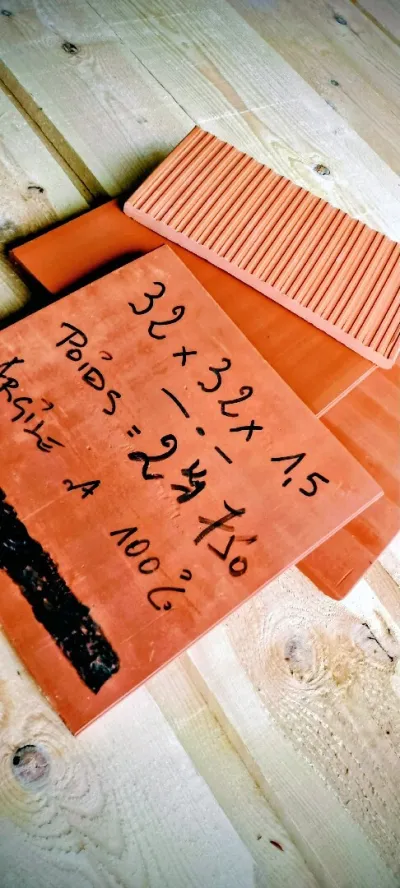 32 x 32 x 1,5
POIDS = 2 kg 750
ARGILE A 100%